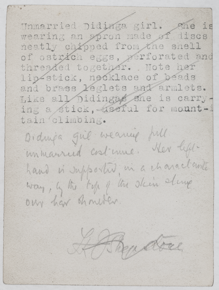 Unmarried Didinga girl. She is
wearing an apron made of discs
neatly chipped from the shell
of ostrich eggs, perforated and
threaded together. Note her
lip-stick, necklace of beads
and brass leglets and armlets.
Like all Didingas she is carry-
ing a stick, useful for mount-
tain climbing.
Didinga girl wearing full
unmarried costume. Her left
hand is supported, in a characteristic
way, by the top of the skin slung
over her shoulder